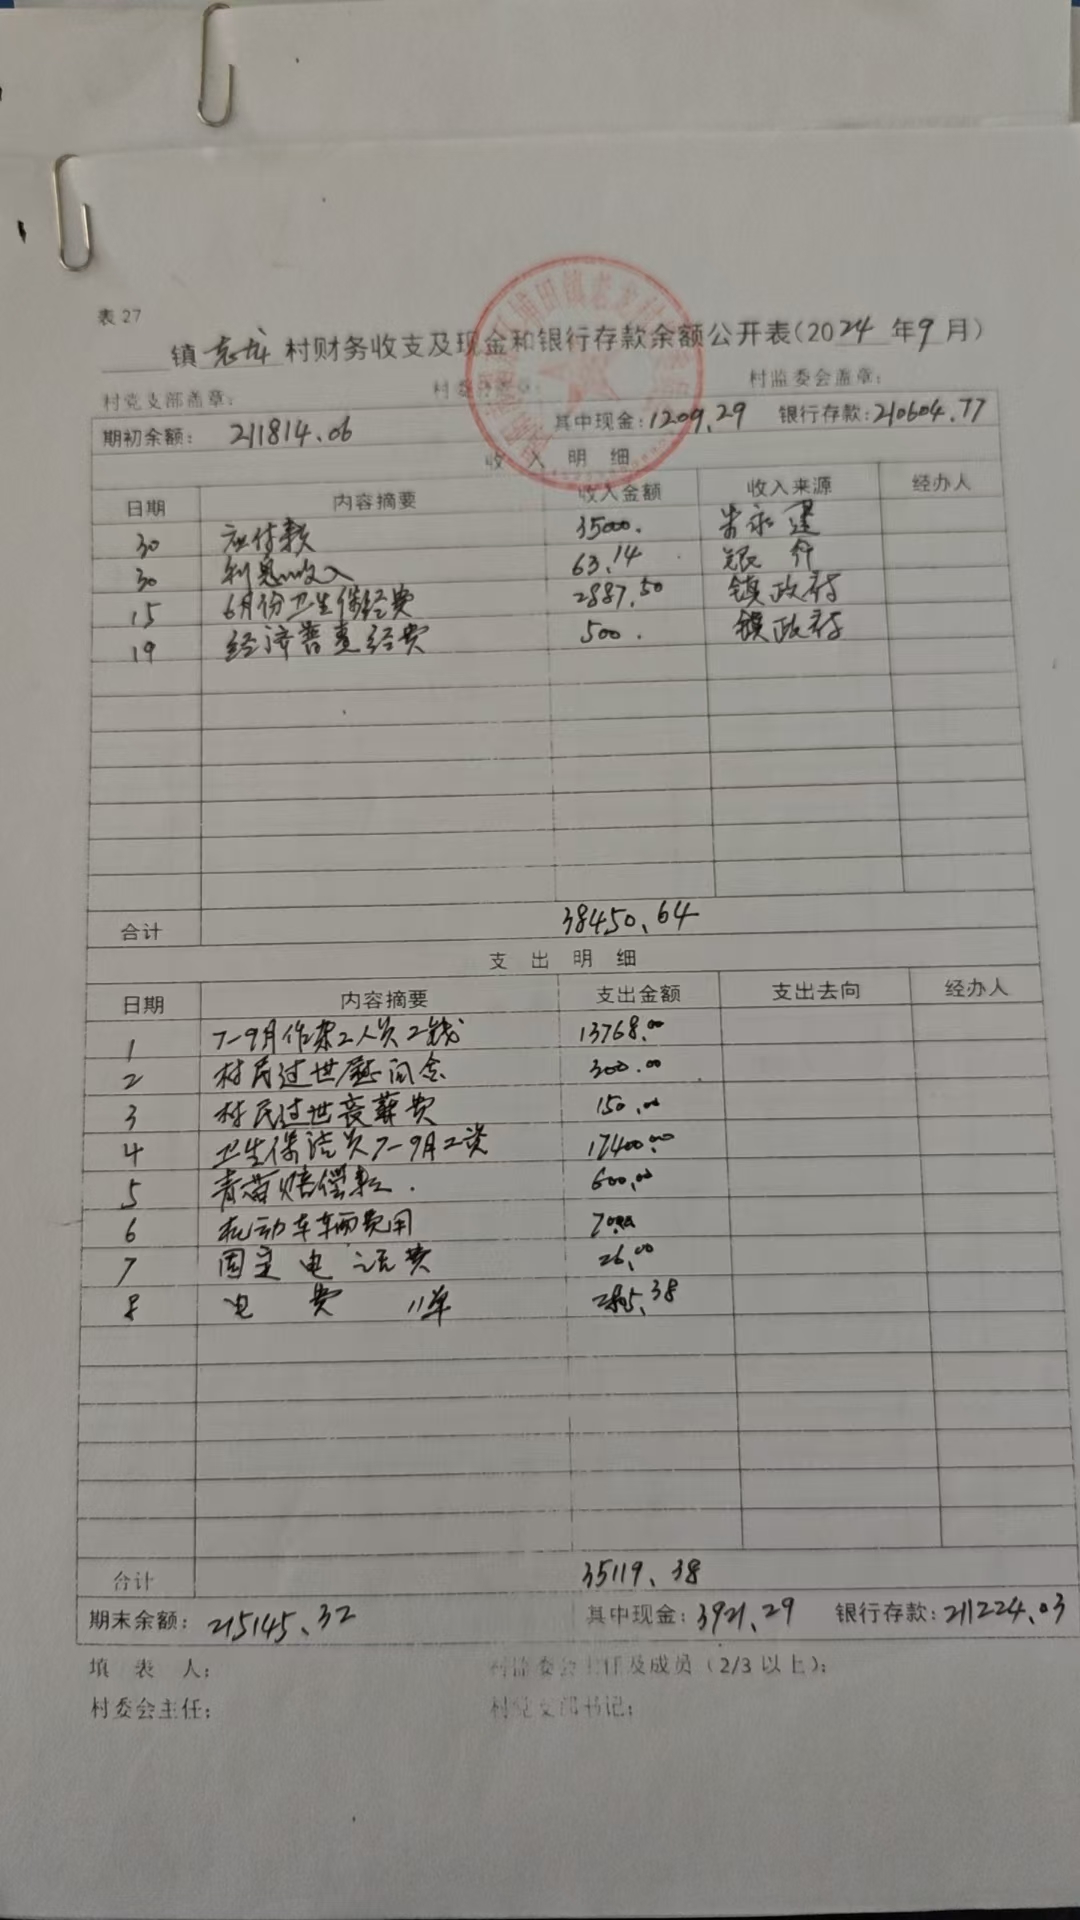 表27
镇 老龙 村财务收支及现金和银行存款余额公开表(2024 年9月)
村党支部盖章: 村委会盖章: 村监委会盖章:
期初余额: 211814.06 其中现金:1209.29 银行存款:210604.77
收入明细
日期 内容摘要 收入金额 收入来源 经办人
30 应付款 35000. 朱永建
30 利息收入 63.14 银行
15 6月份卫生保经费 2887.50 镇政府
19 经济普查经费 500. 镇政府
合计 38450.64
支出明细
日期 内容摘要 支出金额 支出去向 经办人
1 7-9月作架工人员工钱 13768.00
2 村民过世慰问金 300.00
3 村民过世丧葬费 150.00
4 卫生保洁员7-9月工资 17400.00
5 青苗赔偿款. 600.00
6 机动车辆费用
7 固定电话费 26.00
8 电费 11单
合计 35119.38
期末余额: 215145.32 其中现金:3921.29 银行存款:211224.03
填表人: 村监委会主任及成员(2/3以上):
村委会主任: 村党支部书记: